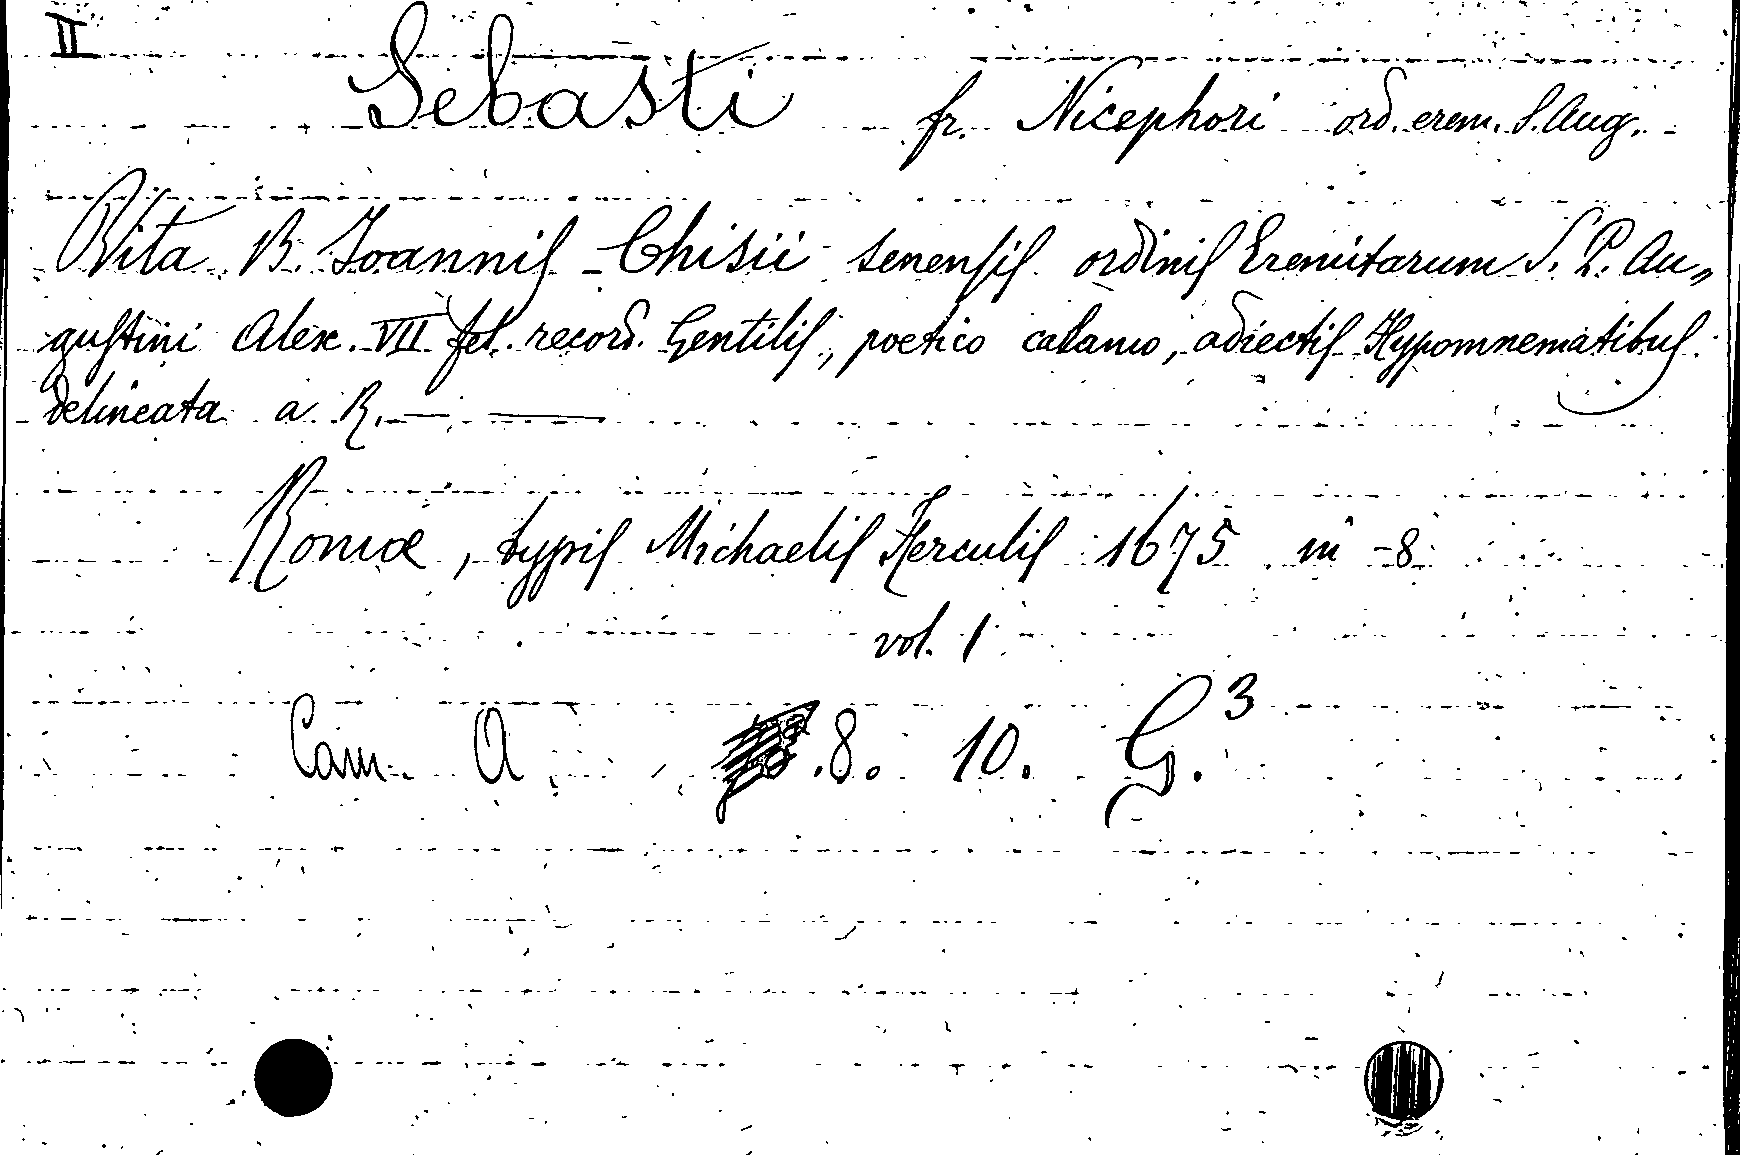 II
Sebasti fr. Nicephori ord. erem. S. Aug.
Vita B. Joannis Chisii senensis ordinis Eremitarum S. P. Au„
gustini Alex. VII fel. record. Gentilis, poetico calamo, adiectis Hypomnematibus
delineata a R. — —
Romæ, typis Michaelis Herculis 1675 in -8
vol. 1
Cam. A .8. 10. G.3